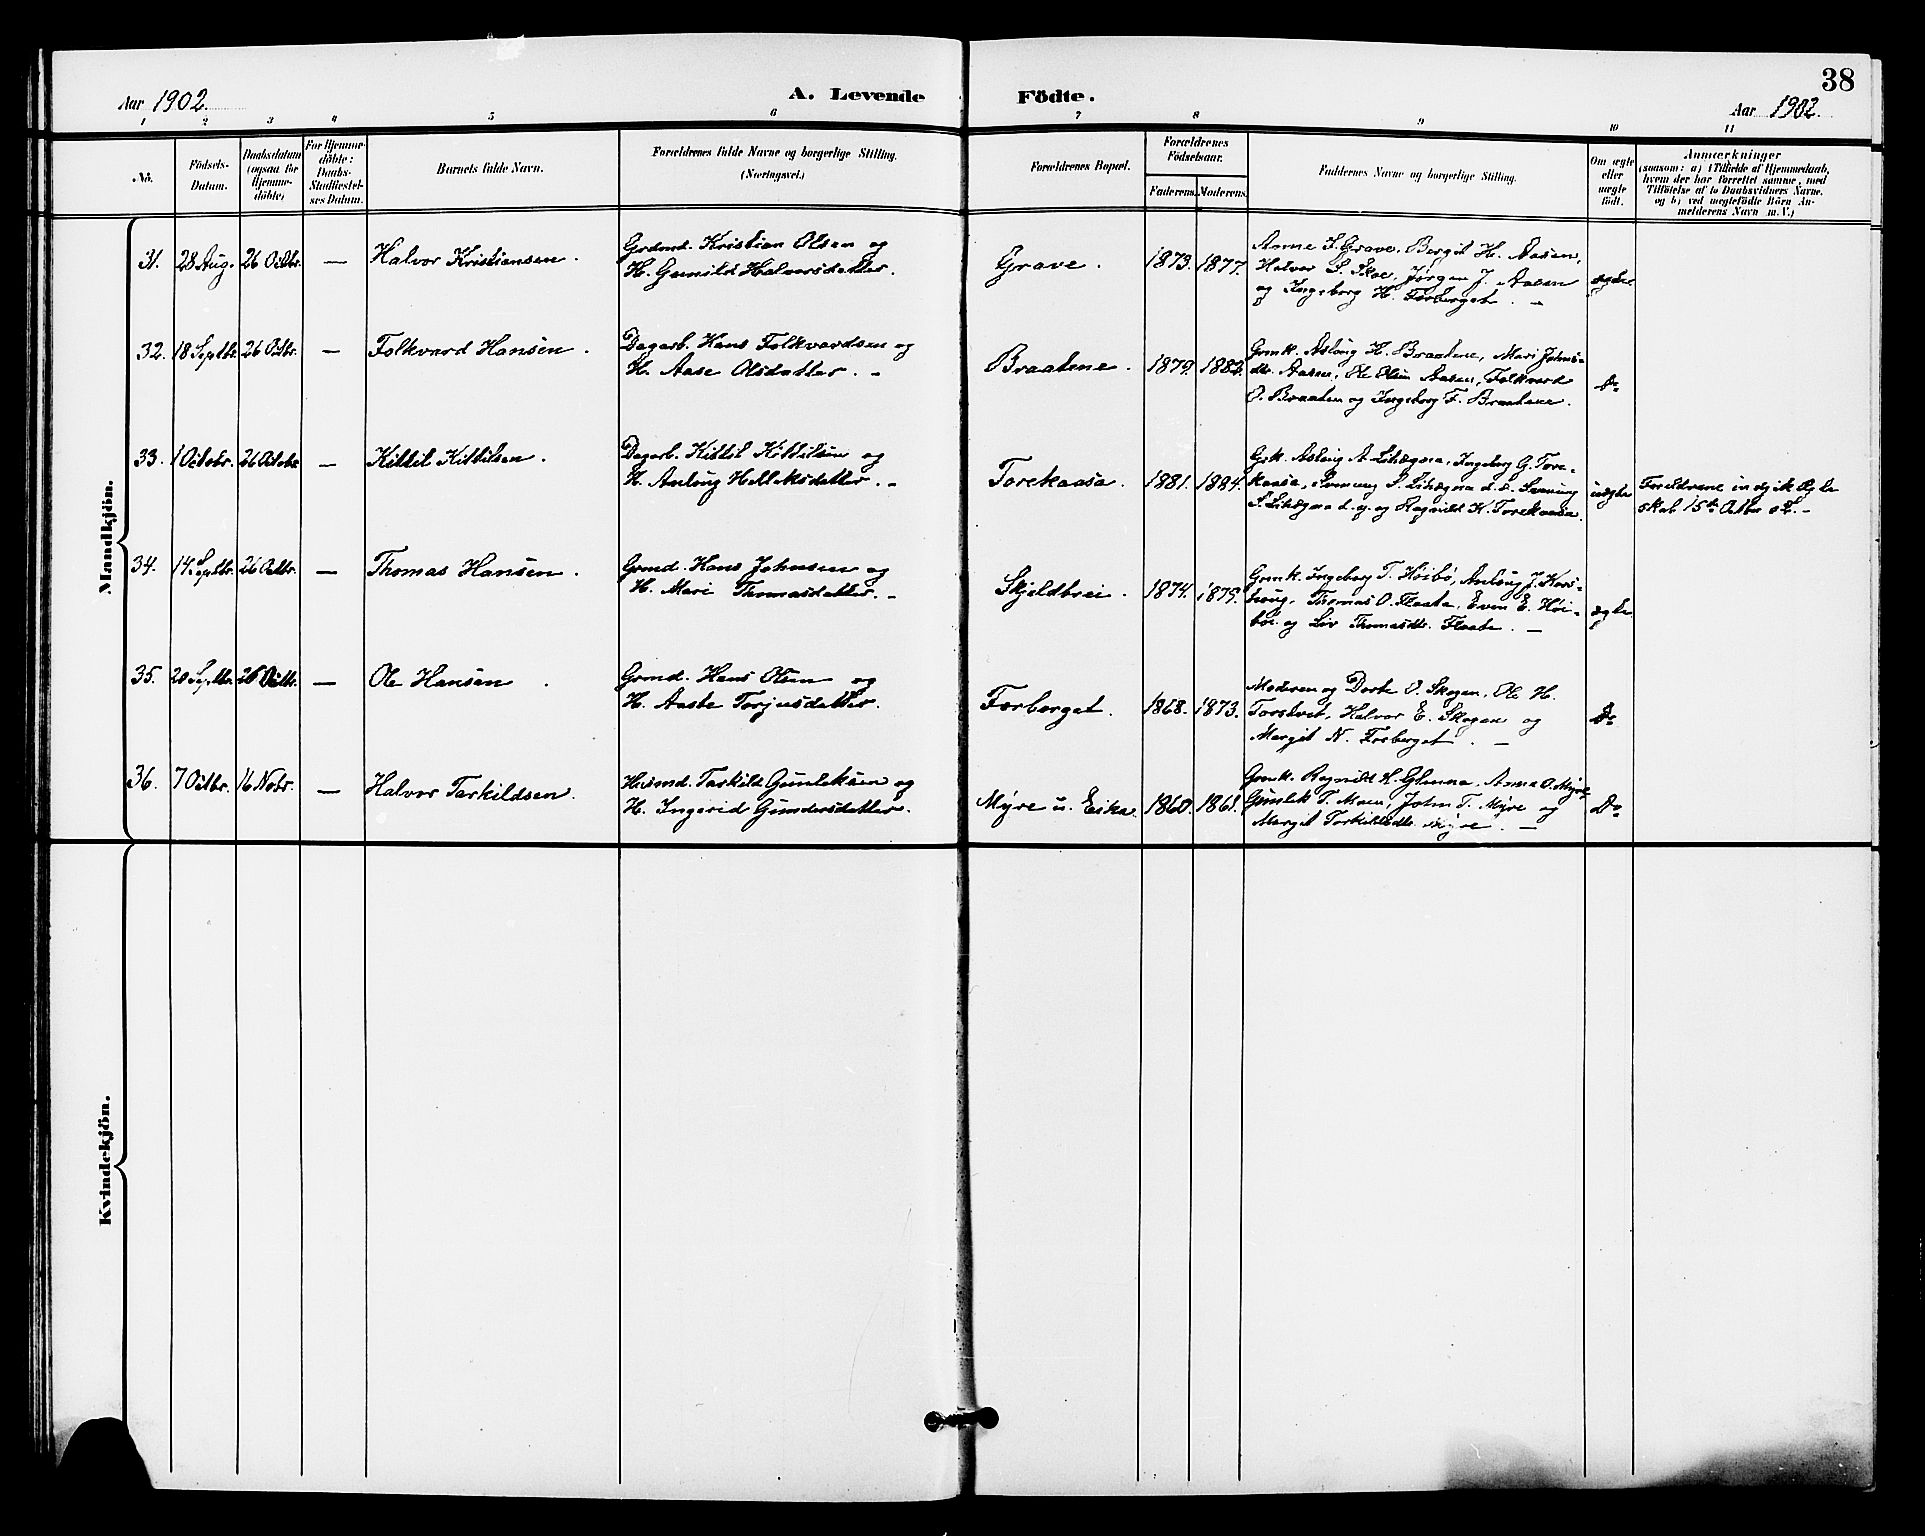 Aar 1902.
A. Levende
Födte.
38
Aar 1902.
1 2 3 4 5 6 7 8 9 10 11
No.
Födsels-
Datum.
Daabsdatum
(ogsaa for
Hjemme-
döbte)
For Hjemme-
döbte:
Daabs-
Stadfæstel-
ses Datum.
Barnets fulde Navn.
Forældrenes fulde Navne og borgerlige Stilling.
(Næringsvei.)
Forældrenes Bopæl.
Forældrenes
Födselsaar.
Faderens.
Moderens.
Faddernes Navne og borgerlige Stilling.
Om ægte
eller
uægte
født.
Anmærkninger
(saasom: a) i Tilfælde af Hjemmedaab,
hvem der har forrettet samme, med
Tilföielse af to Daabsvidners Navne.
og b) ved uegtefödte Börn An-
melderens Navn m. V.)
Mandkjön.
31. 28 Aug. 26 Octbr. — Halvor Kristiansen.
Grdmd. Kristian Olsen og
H. Gunild Halvorsdatter.
Grave. 1873. 1877.
Anne S. Grave, Bergit H. Aasen,
Halvor S. Skoe, Jørgen J. Aasen
og Ingeborg H. Førberget. —
ægte
32. 18 Septbr. 26 Octbr. — Folkvard Hansen.
Dagarb. Hans Folkvardsen og
H. Aase Olsdatter. —
Braatene. 1879. 1882.
Gmk. Aslaug H. Braatene, Mari Johns-
dtr. Aasen, Ole Olsen Aasen, Folkvard
O. Braaten og Ingeborg F. Braatene.
Do
33. 1 Octobr. 26 Octobr. — Kittil Kittilsen.
Dagarb. Kittil Kittilsen og
H. Anlaug Helleksdatter. —
Torekaasa. 1881. 1884.
Gjk. Aslaug A. Lihægna, Ingeborg G. Tore-
kaasa, Svenung S. Lihægna d. æ. Svenung
S. Lihægna d. y. og Ragnild K. Torekaasa.
uægte
Foreldrene indgik Ægte
skab 15de Octbr 02. —
34. 14 Septbr. 26 Octbr. — Thomas Hansen.
Grmd. Hans Johnsen og
H. Mari Thomasdatter. —
Skjeldbrei. 1874. 1879.
Gmk. Ingeborg T. Høibø, Anlaug J. Kaas-
haug, Thomas O. Flaata, Even E. Høi-
bøe og Liv Thomasdtr. Flaata. —
ægte
35. 20 Septbr. 26 Octbr. — Ole Hansen.
Grmd. Hans Olsen og
H. Aaste Torjusdatter.
Førberget. 1868. 1873.
Moderen og Dorte O. Skogen, Ole H.
Torstveit, Halvor E. Skogen og
Margit N. Førberget. —
Do
36. 7 Octbr. 16 Nobr. — Halvor Tarkildsen.
Husmd. Tarkild Gunleksen og
H. Ingerid Gundersdatter.
Myre u. Eika. 1860. 1861.
Gmk. Ragnild H. Glenna, Anna O. Myre,
Gunlek T. Moen, John T. Myre og
Margit Tarkildsdtr. Myre. —
Do
Kvindekjön.